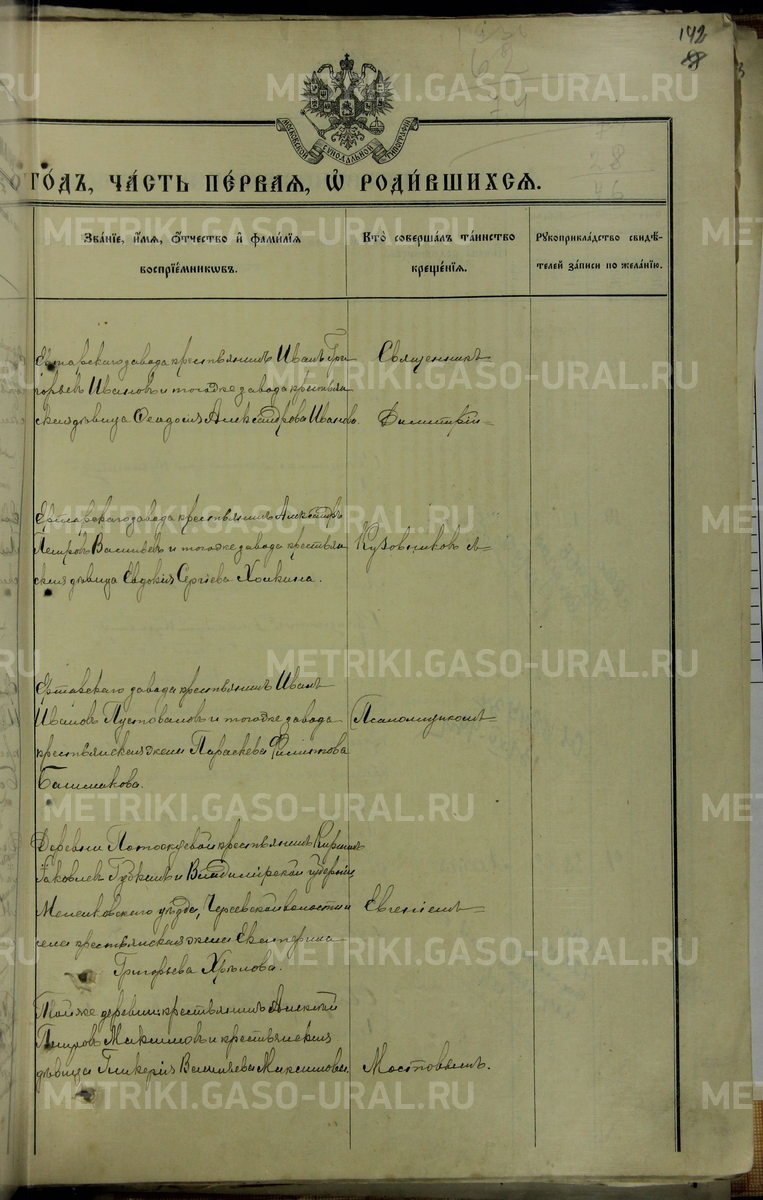 142
METRIKI.GASO-URAL.RU
МОСКОВСКОЙ СѴНОДАЛЬНОЙ ТИПОГРАФІИ
ГО́ДЪ, ЧА́СТЬ ПЕ́РВАЯ, Ѡ҆ РОДИ́ВШИХСЯ.
Зва́нїе, и҆́мя, ѻ҆́тчество и҆ фами́лїя
воспрїе́мникѡвъ.
Кто̀ соверша́лъ та́инство
креще́нїя.
Рꙋкоприкла́дство свидѣ́-
телей за́писи по жела́нїю.
Ертарскаго завода крестьянинъ Иванъ Гри
горьевъ Ивановъ и тогоже завода крестьян
ская дѣвица Ѳеодосія Александрова Иванова.
Священникъ
Димитрій
Ертарскаго завода крестьянинъ Александръ
Петровъ Васильевъ и тогоже завода крестьян
ская дѣвица Евдокія Сергіева Холкина.
Кузовниковъ
Ертарскаго завода крестьянинъ Иванъ
Ивановъ Пустоваловъ и тогоже завода
крестьянская жена Параскева Филиппова
Башмакова.
Псаломщикомъ
Деревни крестьянинъ
Яковлевъ и Владимірской губерніи,
уѣзда, волости и
села крестьянская жена Екатерина
Григорьева
Евгеніемъ
Той же деревни крестьянинъ Алексѣй
Петровъ Максимовъ и крестьянская
дѣвица Гликерія Васильева Максимова.
Мостовымъ.